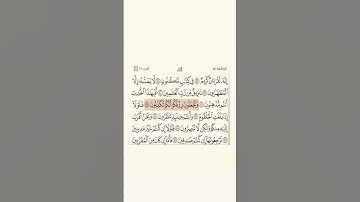 إِنَّهُۥ لَقُرْءَانٌ كَرِيمٌ فِى كِتَٰبٍ مَّكْنُونٍ لَّا يَمَسُّهُۥٓ إِلَّا
ٱلْمُطَهَّرُونَ تَنزِيلٌ مِّن رَّبِّ ٱلْعَٰلَمِينَ أَفَبِهَٰذَا ٱلْحَدِيثِ
أَنتُم مُّدْهِنُونَ وَتَجْعَلُونَ رِزْقَكُمْ أَنَّكُمْ تُكَذِّبُونَ فَلَوْلَآ
إِذَا بَلَغَتِ ٱلْحُلْقُومَ وَأَنتُمْ حِينَئِذٍ تَنظُرُونَ وَنَحْنُ أَقْرَبُ
إِلَيْهِ مِنكُمْ وَلَٰكِن لَّا تُبْصِرُونَ فَلَوْلَآ إِن كُنتُمْ غَيْرَ مَدِينِينَ
تَرْجِعُونَهَآ إِن كُنتُمْ صَٰدِقِينَ فَأَمَّآ إِن كَانَ مِنَ ٱلْمُقَرَّبِينَ